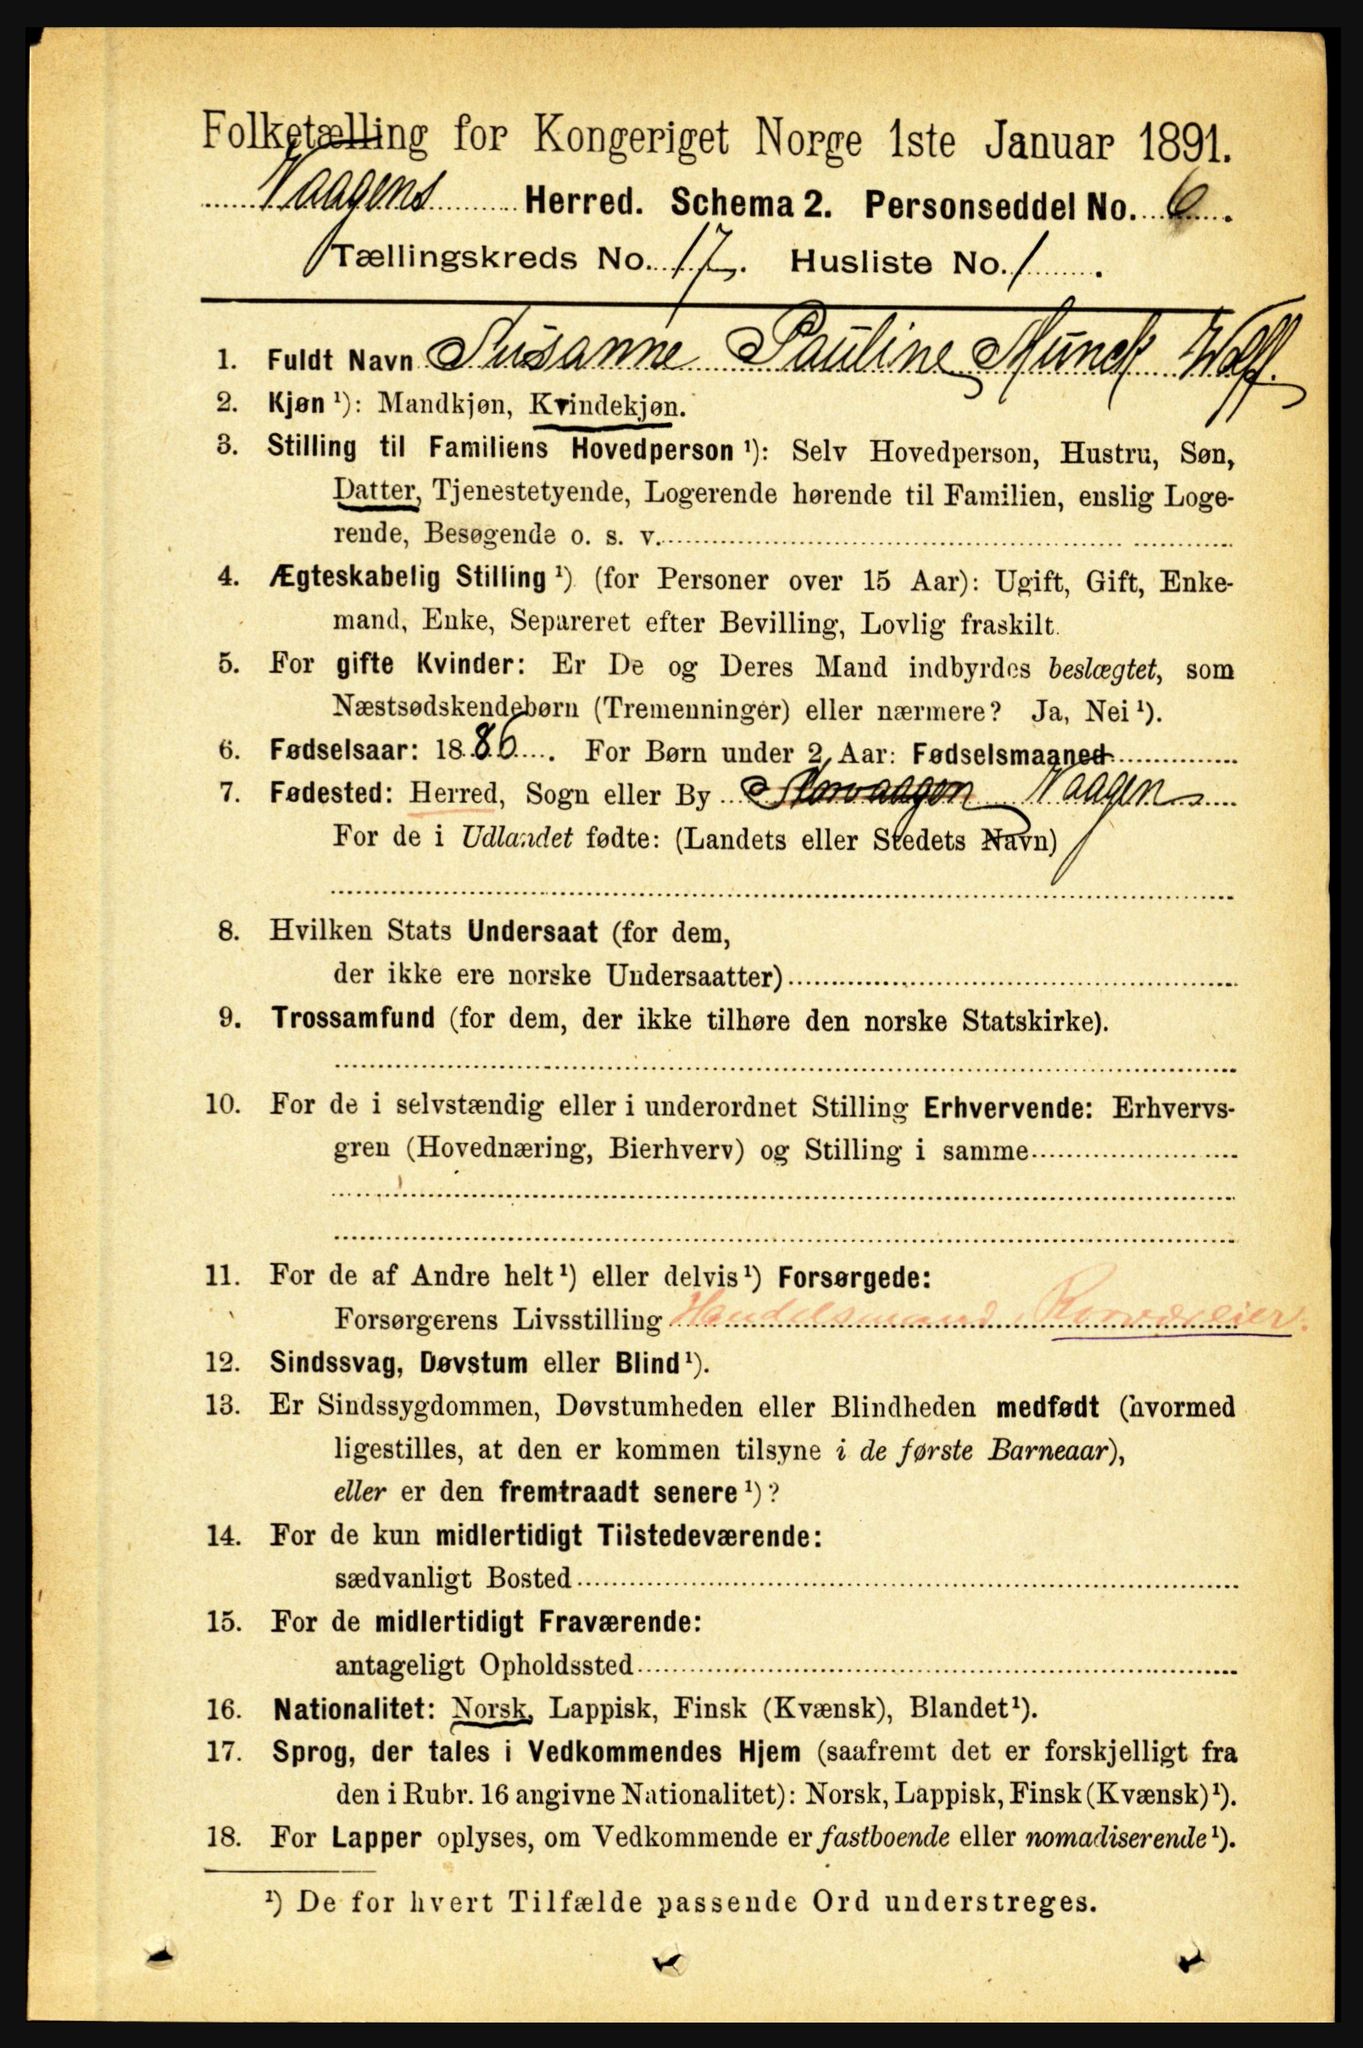 Folketælling for Kongeriget Norge 1ste Januar 1891.
Vaagens Herred. Schema 2. Personseddel No. 6.
Tællingskreds No. 17. Husliste No. 1.
1. Fuldt Navn Susanne Pauline Munck Wolff.
2. Kjøn ¹): Mandkjøn, Kvindekjøn.
3. Stilling til Familiens Hovedperson ¹): Selv Hovedperson, Hustru, Søn,
Datter, Tjenestetyende, Logerende hørende til Familien, enslig Loge-
rende, Besøgende o. s. v.
4. Ægteskabelig Stilling ¹) (for Personer over 15 Aar): Ugift, Gift, Enke-
mand, Enke, Separeret efter Bevilling, Lovlig fraskilt.
5. For gifte Kvinder: Er De og Deres Mand indbyrdes beslægtet, som
Næstsødskendebørn (Tremenninger) eller nærmere? Ja, Nei ¹).
6. Fødselsaar: 1886. For Børn under 2 Aar: Fødselsmaaned
7. Fødested: Herred, Sogn eller By Storvaagen Vaagen
For de i Udlandet fødte: (Landets eller Stedets Navn)
8. Hvilken Stats Undersaat (for dem,
der ikke ere norske Undersaatter)
9. Trossamfund (for dem, der ikke tilhøre den norske Statskirke).
10. For de i selvstændig eller i underordnet Stilling Erhvervende: Erhvervs-
gren (Hovednæring, Bierhverv) og Stilling i samme
11. For de af Andre helt ¹) eller delvis ¹) Forsørgede:
Forsørgerens Livsstilling Handelsmand, Rorværeier.
12. Sindssvag, Døvstum eller Blind ¹).
13. Er Sindssygdommen, Døvstumheden eller Blindheden medfødt (hvormed
ligestilles, at den er kommen tilsyne i de første Barneaar),
eller er den fremtraadt senere ¹)?
14. For de kun midlertidigt Tilstedeværende:
sædvanligt Bosted
15. For de midlertidigt Fraværende:
antageligt Opholdssted
16. Nationalitet: Norsk, Lappisk, Finsk (Kvænsk), Blandet ¹).
17. Sprog, der tales i Vedkommendes Hjem (saafremt det er forskjelligt fra
den i Rubr. 16 angivne Nationalitet): Norsk, Lappisk, Finsk (Kvænsk) ¹).
18. For Lapper oplyses, om Vedkommende er fastboende eller nomadiserende ¹).
¹) De for hvert Tilfælde passende Ord understreges.